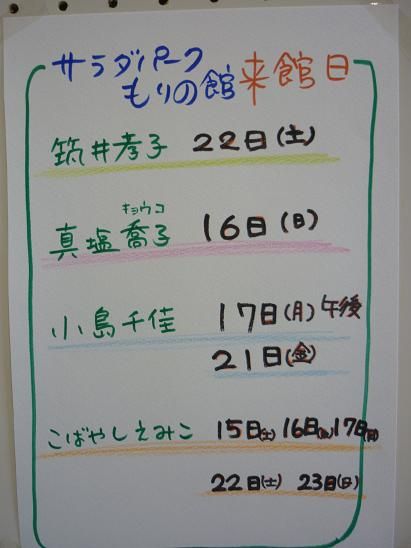 サラダパーク
もりの館 来館日
筑井孝子 22日(土)
キョウコ
真塩喬子 16日(日)
小島千佳 17日(月)午後
21日(金)
こばやしえみこ 15日(土) 16日(日) 17日(月)
22日(土) 23日(日)